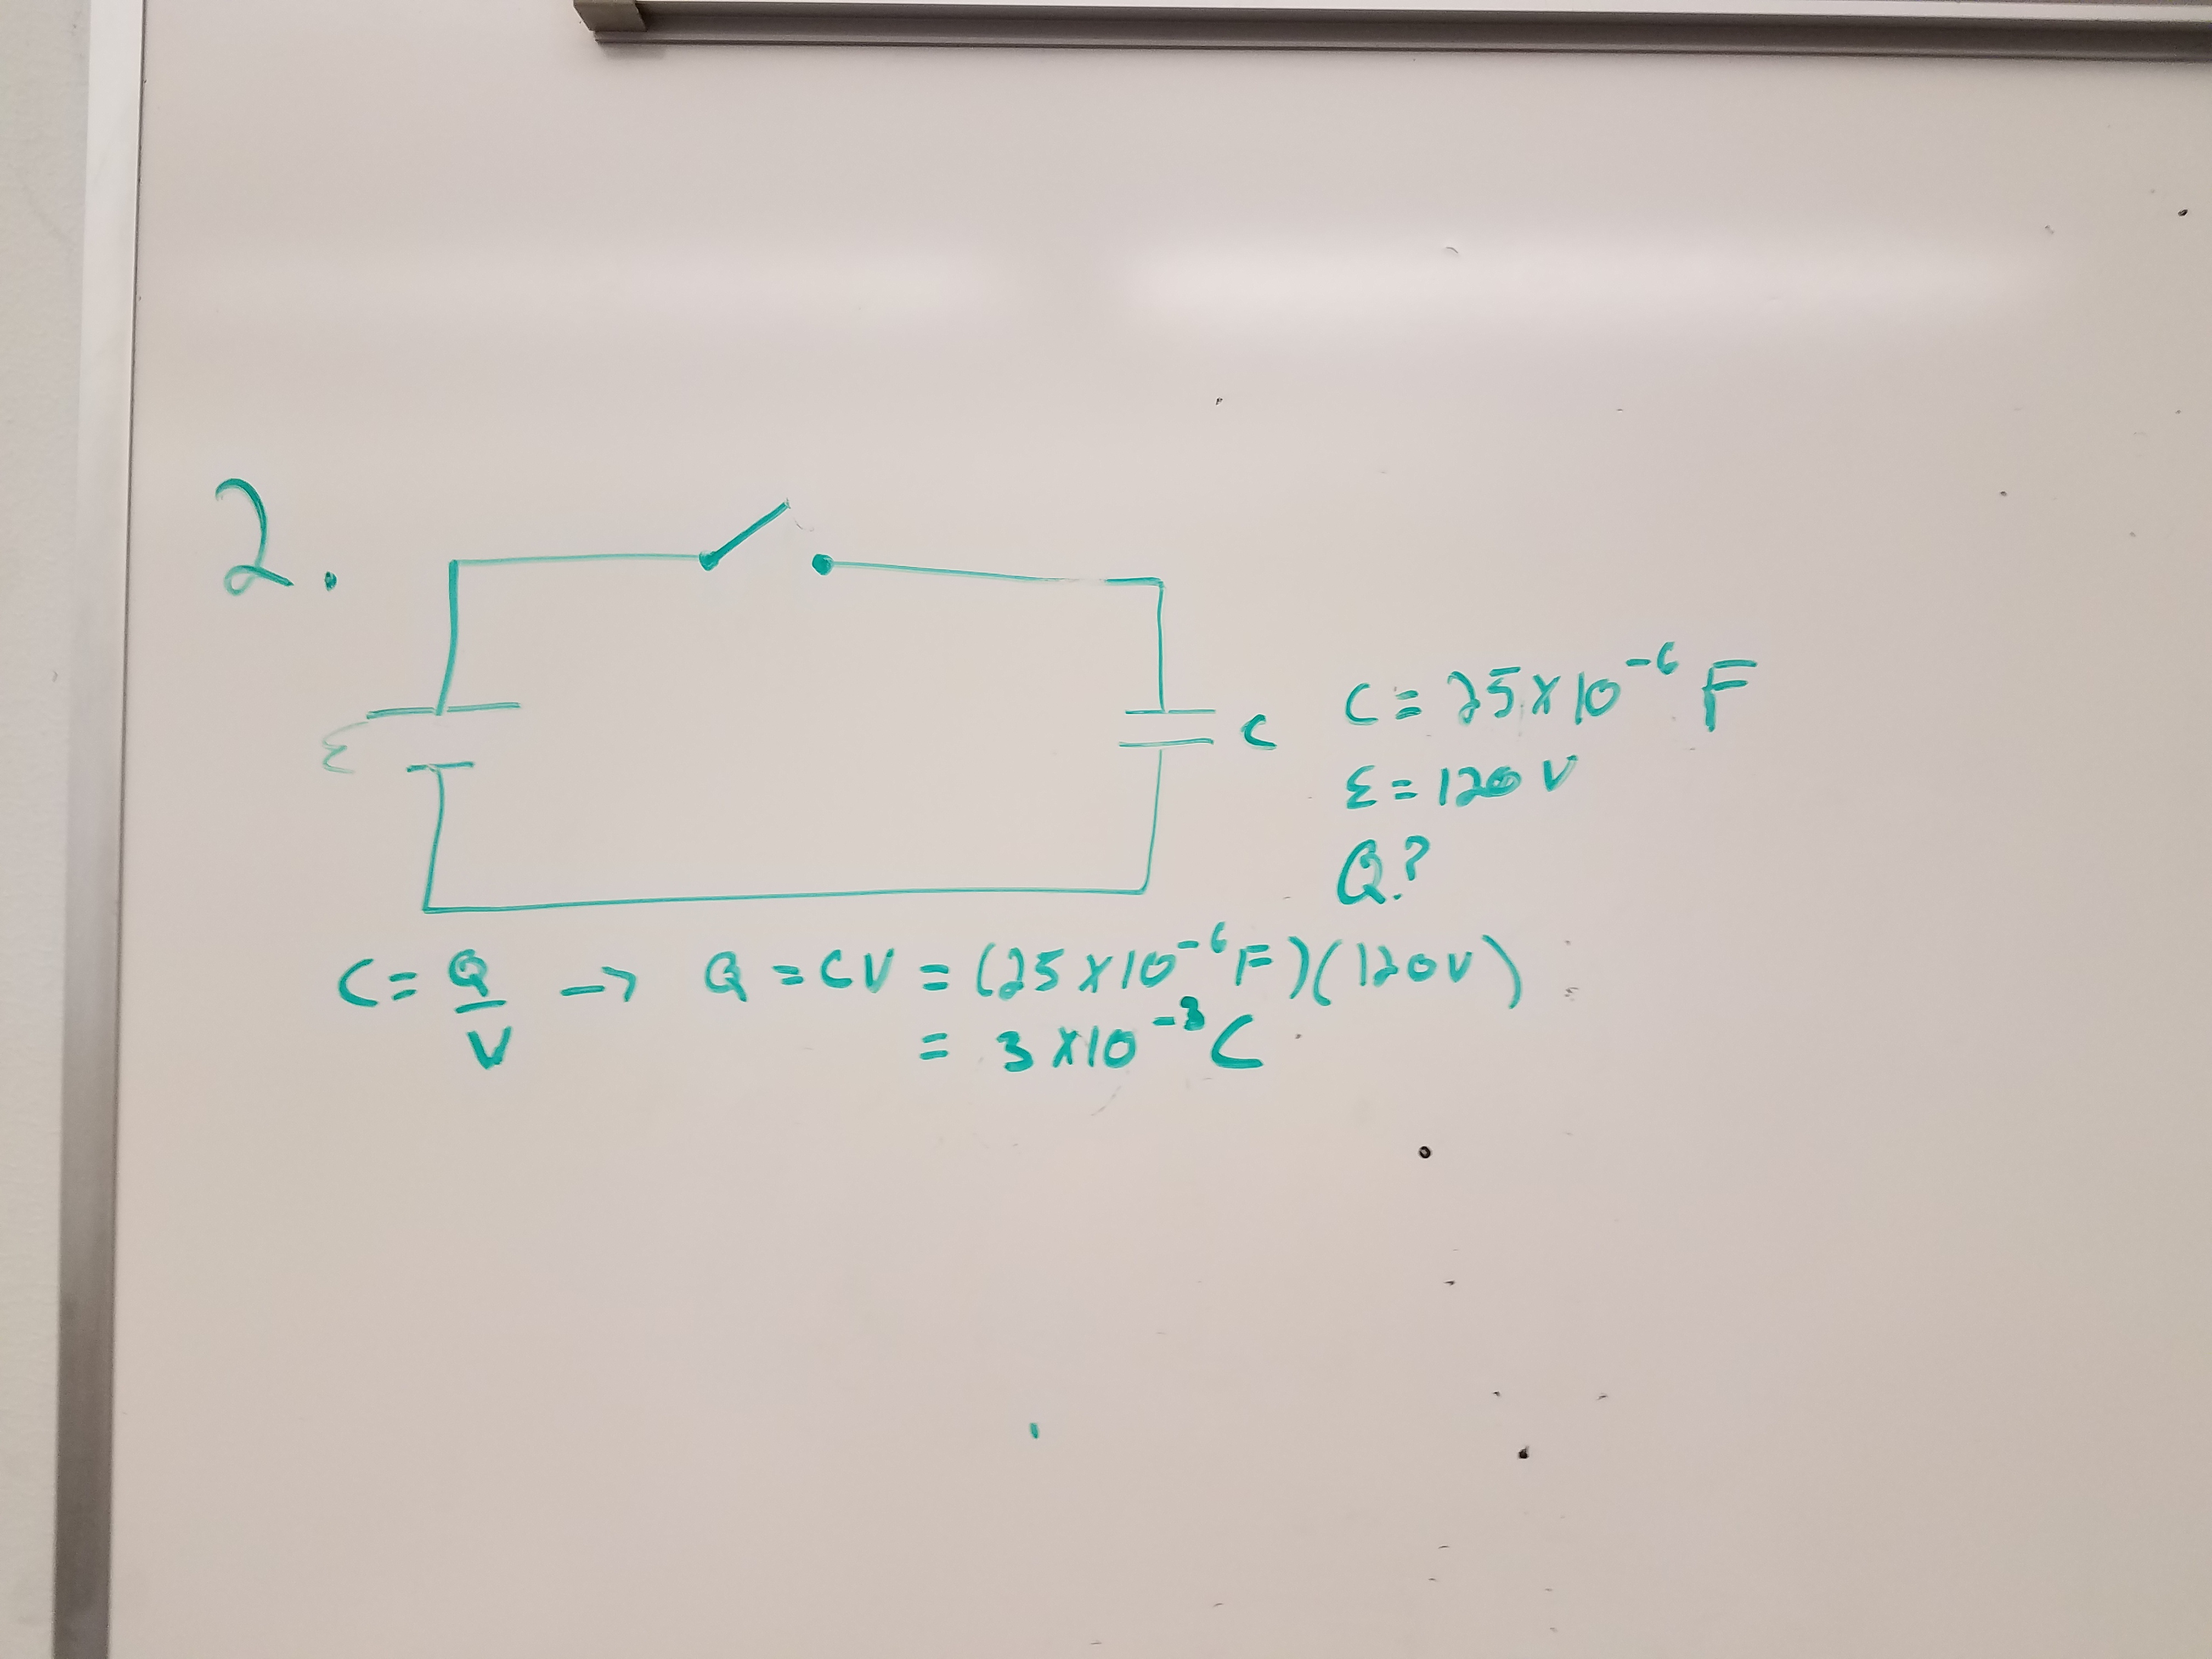 2.
ε
C
C = 25 x 10⁻⁶ F
ε = 120 V
Q?
C = Q/V → Q = CV = (25 x 10⁻⁶ F)(120V)
= 3 x 10⁻³ C